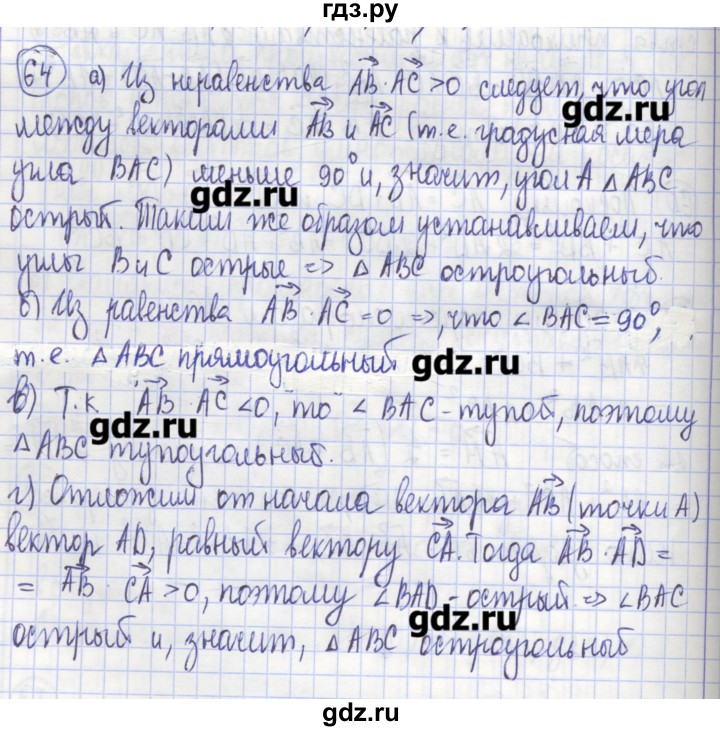 гдз.ру
64 а) Из неравенства AB · AC >0 следует, что угол
gdz.ru
между векторами AB и AC (т.е. градусная мера
угла BAC) меньше 90° и, значит, угол A △ ABC
gdz.ru
острый. Таким же образом устанавливаем, что
углы B и C острые => △ ABC остроугольный.
б) Из равенства AB · AC = 0 =>, что ∠ BAC = 90°,
т.е. △ ABC прямоугольный
gdz.ru
в) Т.к. AB · AC <0, то ∠ BAC - тупой, поэтому
gdz.ru
△ ABC тупоугольный.
г) Отложим от начала вектора AB (точки A)
вектор AD, равный вектору CA. Тогда AB · AD =
= AB · CA >0, поэтому ∠BAD - острый => ∠BAC
gdz.ru
острый и, значит, △ ABC остроугольный
gdz.ru